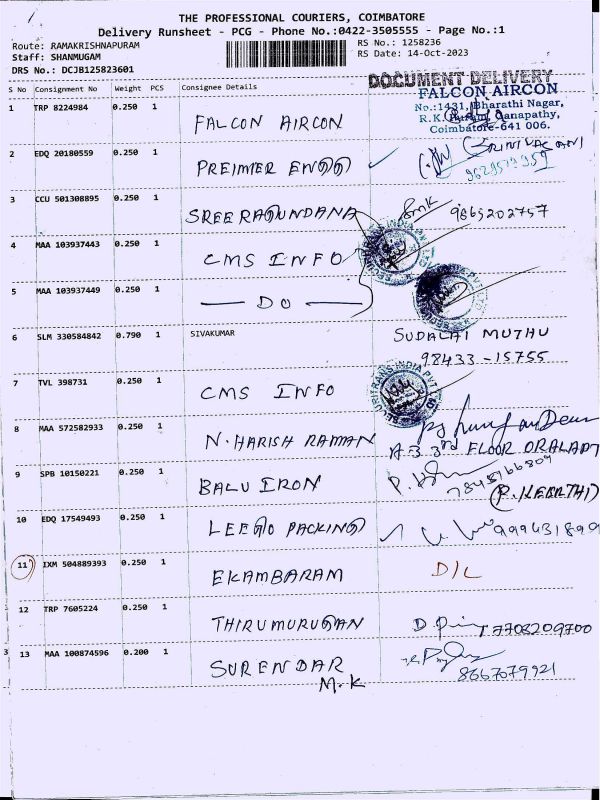 THE PROFESSIONAL COURIERS, COIMBATORE
Delivery Runsheet - PCG - Phone No.:0422-3505555 - Page No.:1
Route: RAMAKRISHNAPURAM
Staff: SHANMUGAM
DRS No.: DCJB125823601
RS No.: 1258236
RS Date: 14-Oct-2023
S No Consignment No Weight PCS Consignee Details
DOCUMENT DELIVERY
FALCON AIRCON
No.:1431, Bharathi Nagar,
R.K. Puram, Ganapathy,
Coimbatore-641 006.
1 TRP 8224984 0.250 1 FALCON AIRCON
2 EDQ 20180559 0.250 1 PREIMIER ENGG ✓ SRINIVASAN
9629579959
3 CCU 501308895 0.250 1 SREE RAGUNDANA smk 9865202757
4 MAA 103937443 0.250 1 CMS INFO
5 MAA 103937449 0.250 1 — DO —
6 SLM 330584842 0.790 1 SIVAKUMAR SUDALAI MUTHU
98433-15755
7 TVL 398731 0.250 1 CMS INFO
8 MAA 572582933 0.250 1 N. HARISH RAMAN
A-3 3rd FLOOR
9 SPB 10150221 0.250 1 BALU IRON
(P. KEERTHI)
10 EDQ 17549493 0.250 1 LEEGO PACKING ✓ 999431899
11 IXM 504889393 0.250 1 EKAMBARAM D/L
12 TRP 7605224 0.250 1 THIRUMURUGAN 7708209700
3 13 MAA 100874596 0.200 1 SURENDAR 8667079921
M.K